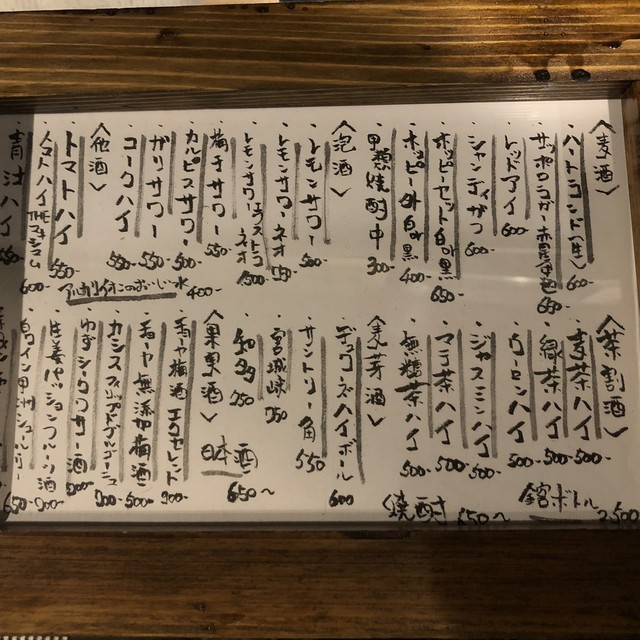 〈麦酒〉
・ハートランド(生) 600-
・サッポロラガー赤星中瓶 650-
・レッドアイ 600-
・シャンディガフ 600-
・ホッピーセット白or黒 650
・ホッピー外白or黒 400-
・甲類焼酎中 300-
〈泡酒〉
・レモンサワー 500-
・レモンサワーネオ 550
・レモンサワーエストラネオ 500-
・梅干サワー
・カルピスサワー 500-
・ガリサワー 550-
・コークハイ 550-
〈他酒〉
・トマトハイ 550-
・トマトハイTHEマキシマム 600
・青汁ハイ 550-
アルカリイオンのおいしい水 400-
〈茶割酒〉
・麦茶ハイ 500-
・緑茶ハイ 500-
・ウーロンハイ 500-
・ジャスミンハイ 500-
・マテ茶ハイ 500-
・無糖茶ハイ 500-
〈麦芽酒〉
・デュワーズハイボール 600
・サントリー角 550
・宮城峡 750
・知多 750
〈果実酒〉
・チョーヤ梅酒エクセレント 700-
・チョーヤ無添加梅酒 500-
・カシス
・ゆずシークワサー酒 700-
・パッションフルーツ酒 700-
・白ワイン甲州シュールリー 650
日本酒 650〜
焼酎 650〜
ボトル 2,500